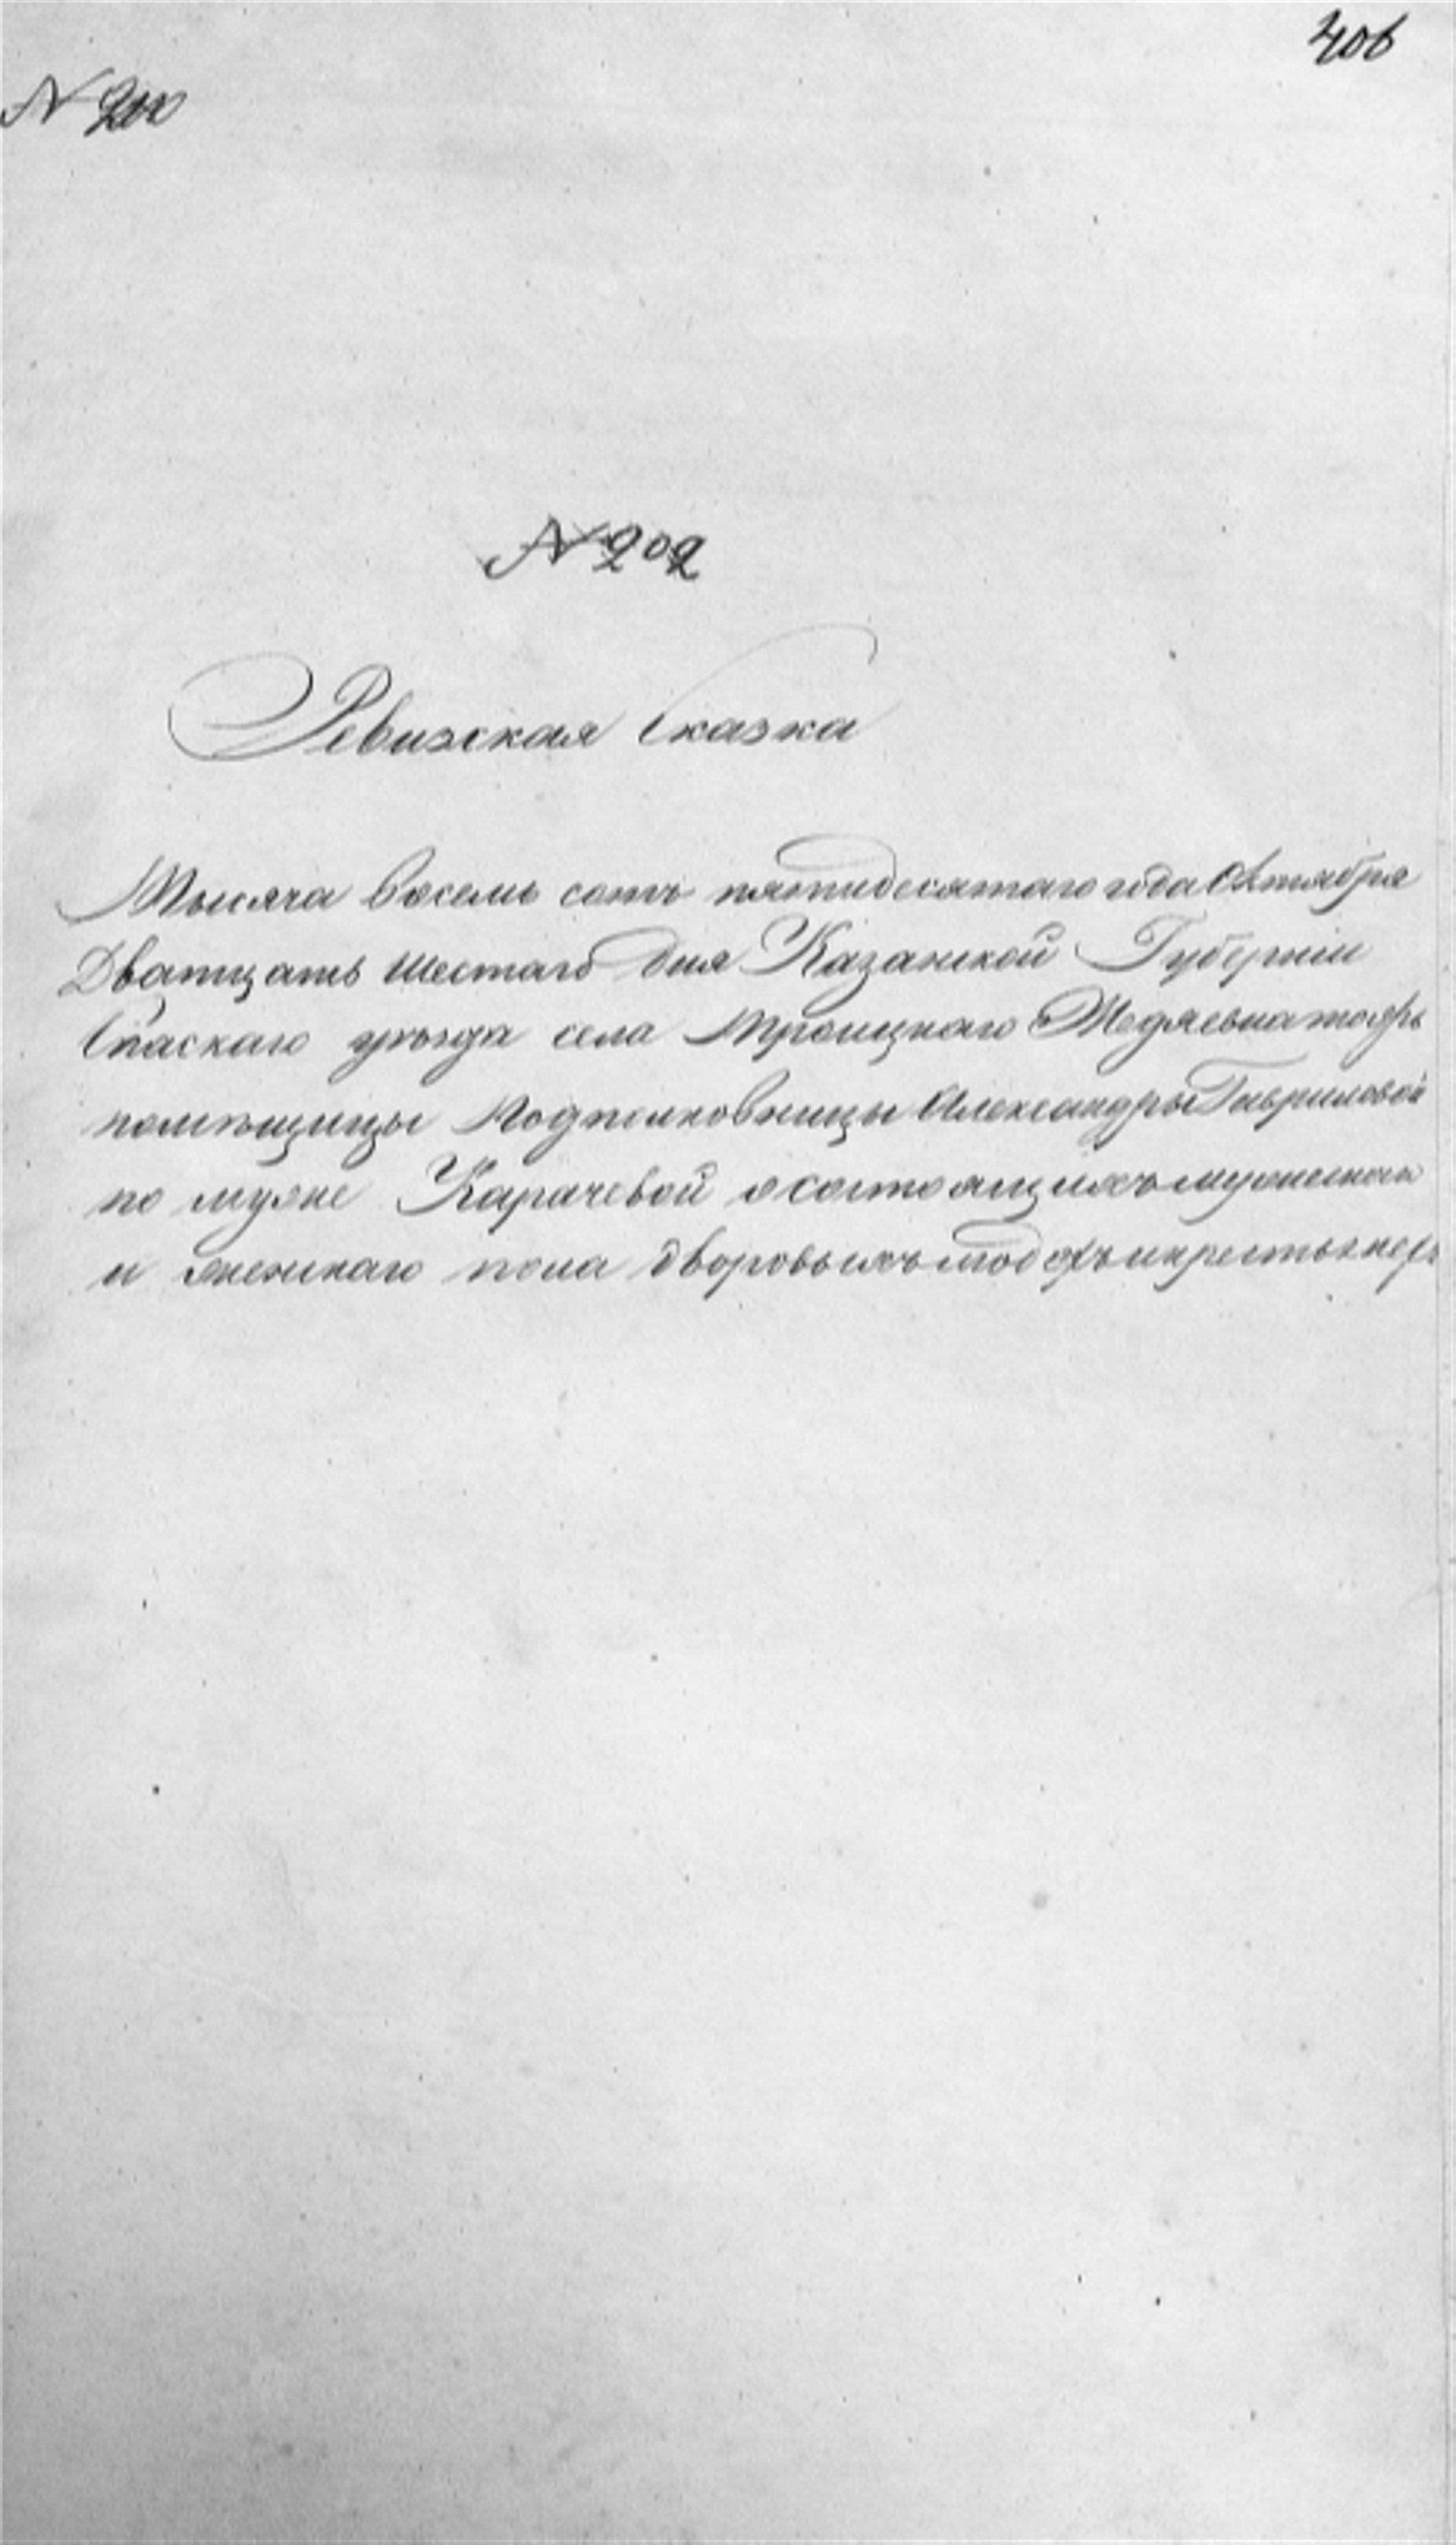 406
N 200
N 202
Ревизская Сказка
Тысяча восемь сотъ пятидесятаго года Октября
Дватцать шестаго дня Казанской Губерніи
Спаскаго уѣзда села Троицкаго
помѣщицы Подполковницы Александры Гавриловой
по муже Карачевой о состоящихъ мужескаго
и женскаго пола дворовыхъ людехъ и крестьянехъ